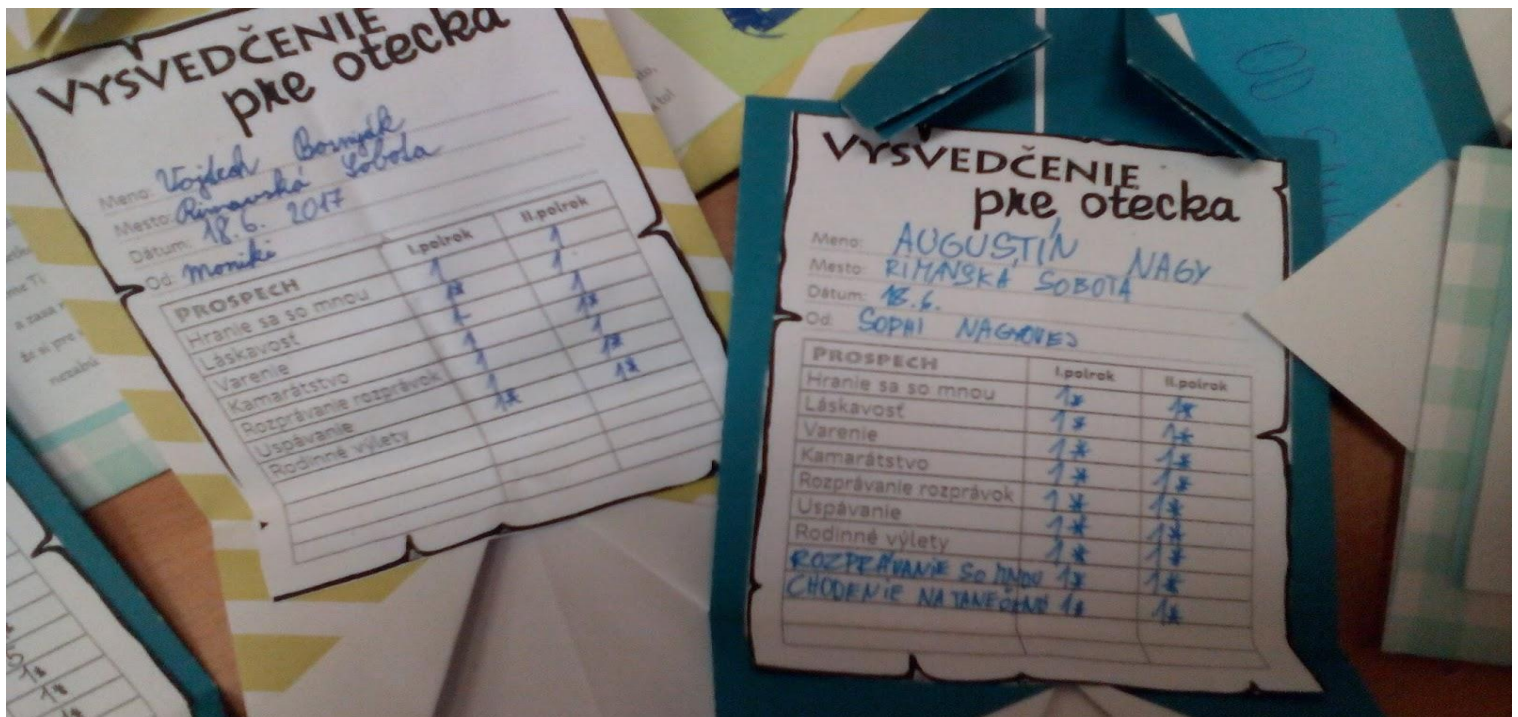 VYSVEDČENIE
pre otecka
Meno: Vojtech Bornyák
Mesto: Rimavská Sobota
Dátum: 18.6. 2017
Od: Moniki
PROSPECH I.polrok II.polrok
Hranie sa so mnou 1 1
Láskavosť 1* 1
Varenie 1 1
Kamarátstvo 1 1*
Rozprávanie rozprávok 1 1
Uspávanie 1 1*
Rodinné výlety 1* 1*
VYSVEDČENIE
pre otecka
Meno: AUGUSTÍN NAGY
Mesto: RIMAVSKÁ SOBOTA
Dátum: 18.6.
Od: SOPHI NAGYOVEJ
PROSPECH I.polrok II.polrok
Hranie sa so mnou 1* 1*
Láskavosť 1* 1*
Varenie 1* 1*
Kamarátstvo 1* 1*
Rozprávanie rozprávok 1* 1*
Uspávanie 1* 1*
Rodinné výlety 1* 1*
ROZPRÁVANIE SO MNOU 1* 1*
CHODENIE NA TANEČNÚ 1* 1*
OD
1*
1*
1*